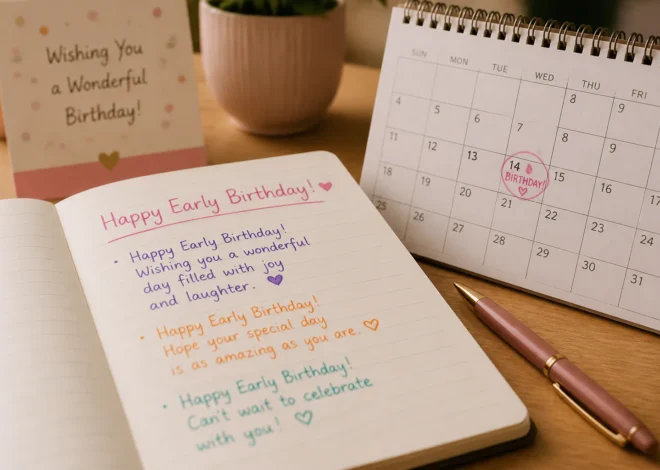 Wishing You
a Wonderful
Birthday!
Happy Early Birthday!
• Happy Early Birthday!
Wishing you a wonderful
day filled with joy
and laughter.
• Happy Early Birthday!
Hope your special day
is as amazing as you are.
• Happy Early Birthday!
Can't wait to celebrate
with you!
SUN MON TUE WED THU FRI
8 9
4 5 6 7 8 9
11 12 13 14 15 16 17
BIRTHDAY!
18 19 20 21 22 23 24
25 26 27 28 29 30 31